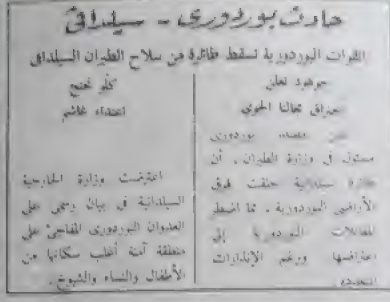 حادث بوردوري - سيلداني
القوات البوردورية تسقط طائرة من سلاح الطيران السيلداني
جوهود تعلن
اختراق مجالنا الجوي
مسئول في وزارة الطيران، أن
طائرة سيلدانية حلقت فوق
الأراضي البوردورية، مما اضطر
المقاتلات البوردورية إلى
اعتراضها ورغم الإنذارات
كلو تحتج
اعتداء غاشم
اعترضت وزارة الخارجية
السيلدانية في بيان رسمي على
العدوان البوردوري المفاجئ على
منطقة آمنة أغلب سكانها من
الأطفال والنساء والشيوخ.